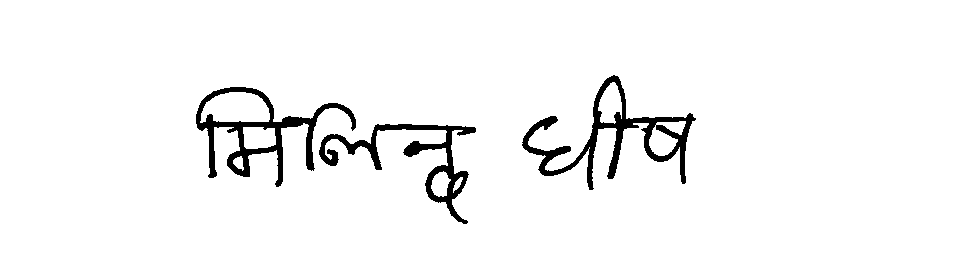 मिलिन्द घोष